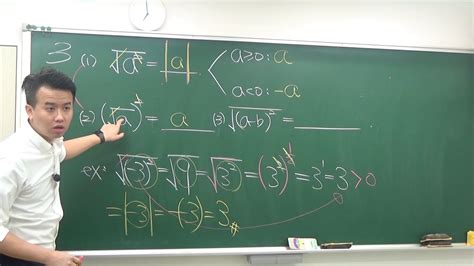 3 (1) √a² = |a| < a≥0: a
a<0: -a
(2) (√a)² = a (3) √(a-b)² = ______
ex: √(-3)² = √9 = √3² = (3²)^½ = 3¹ = 3 > 0
= |-3| = -(-3) = 3